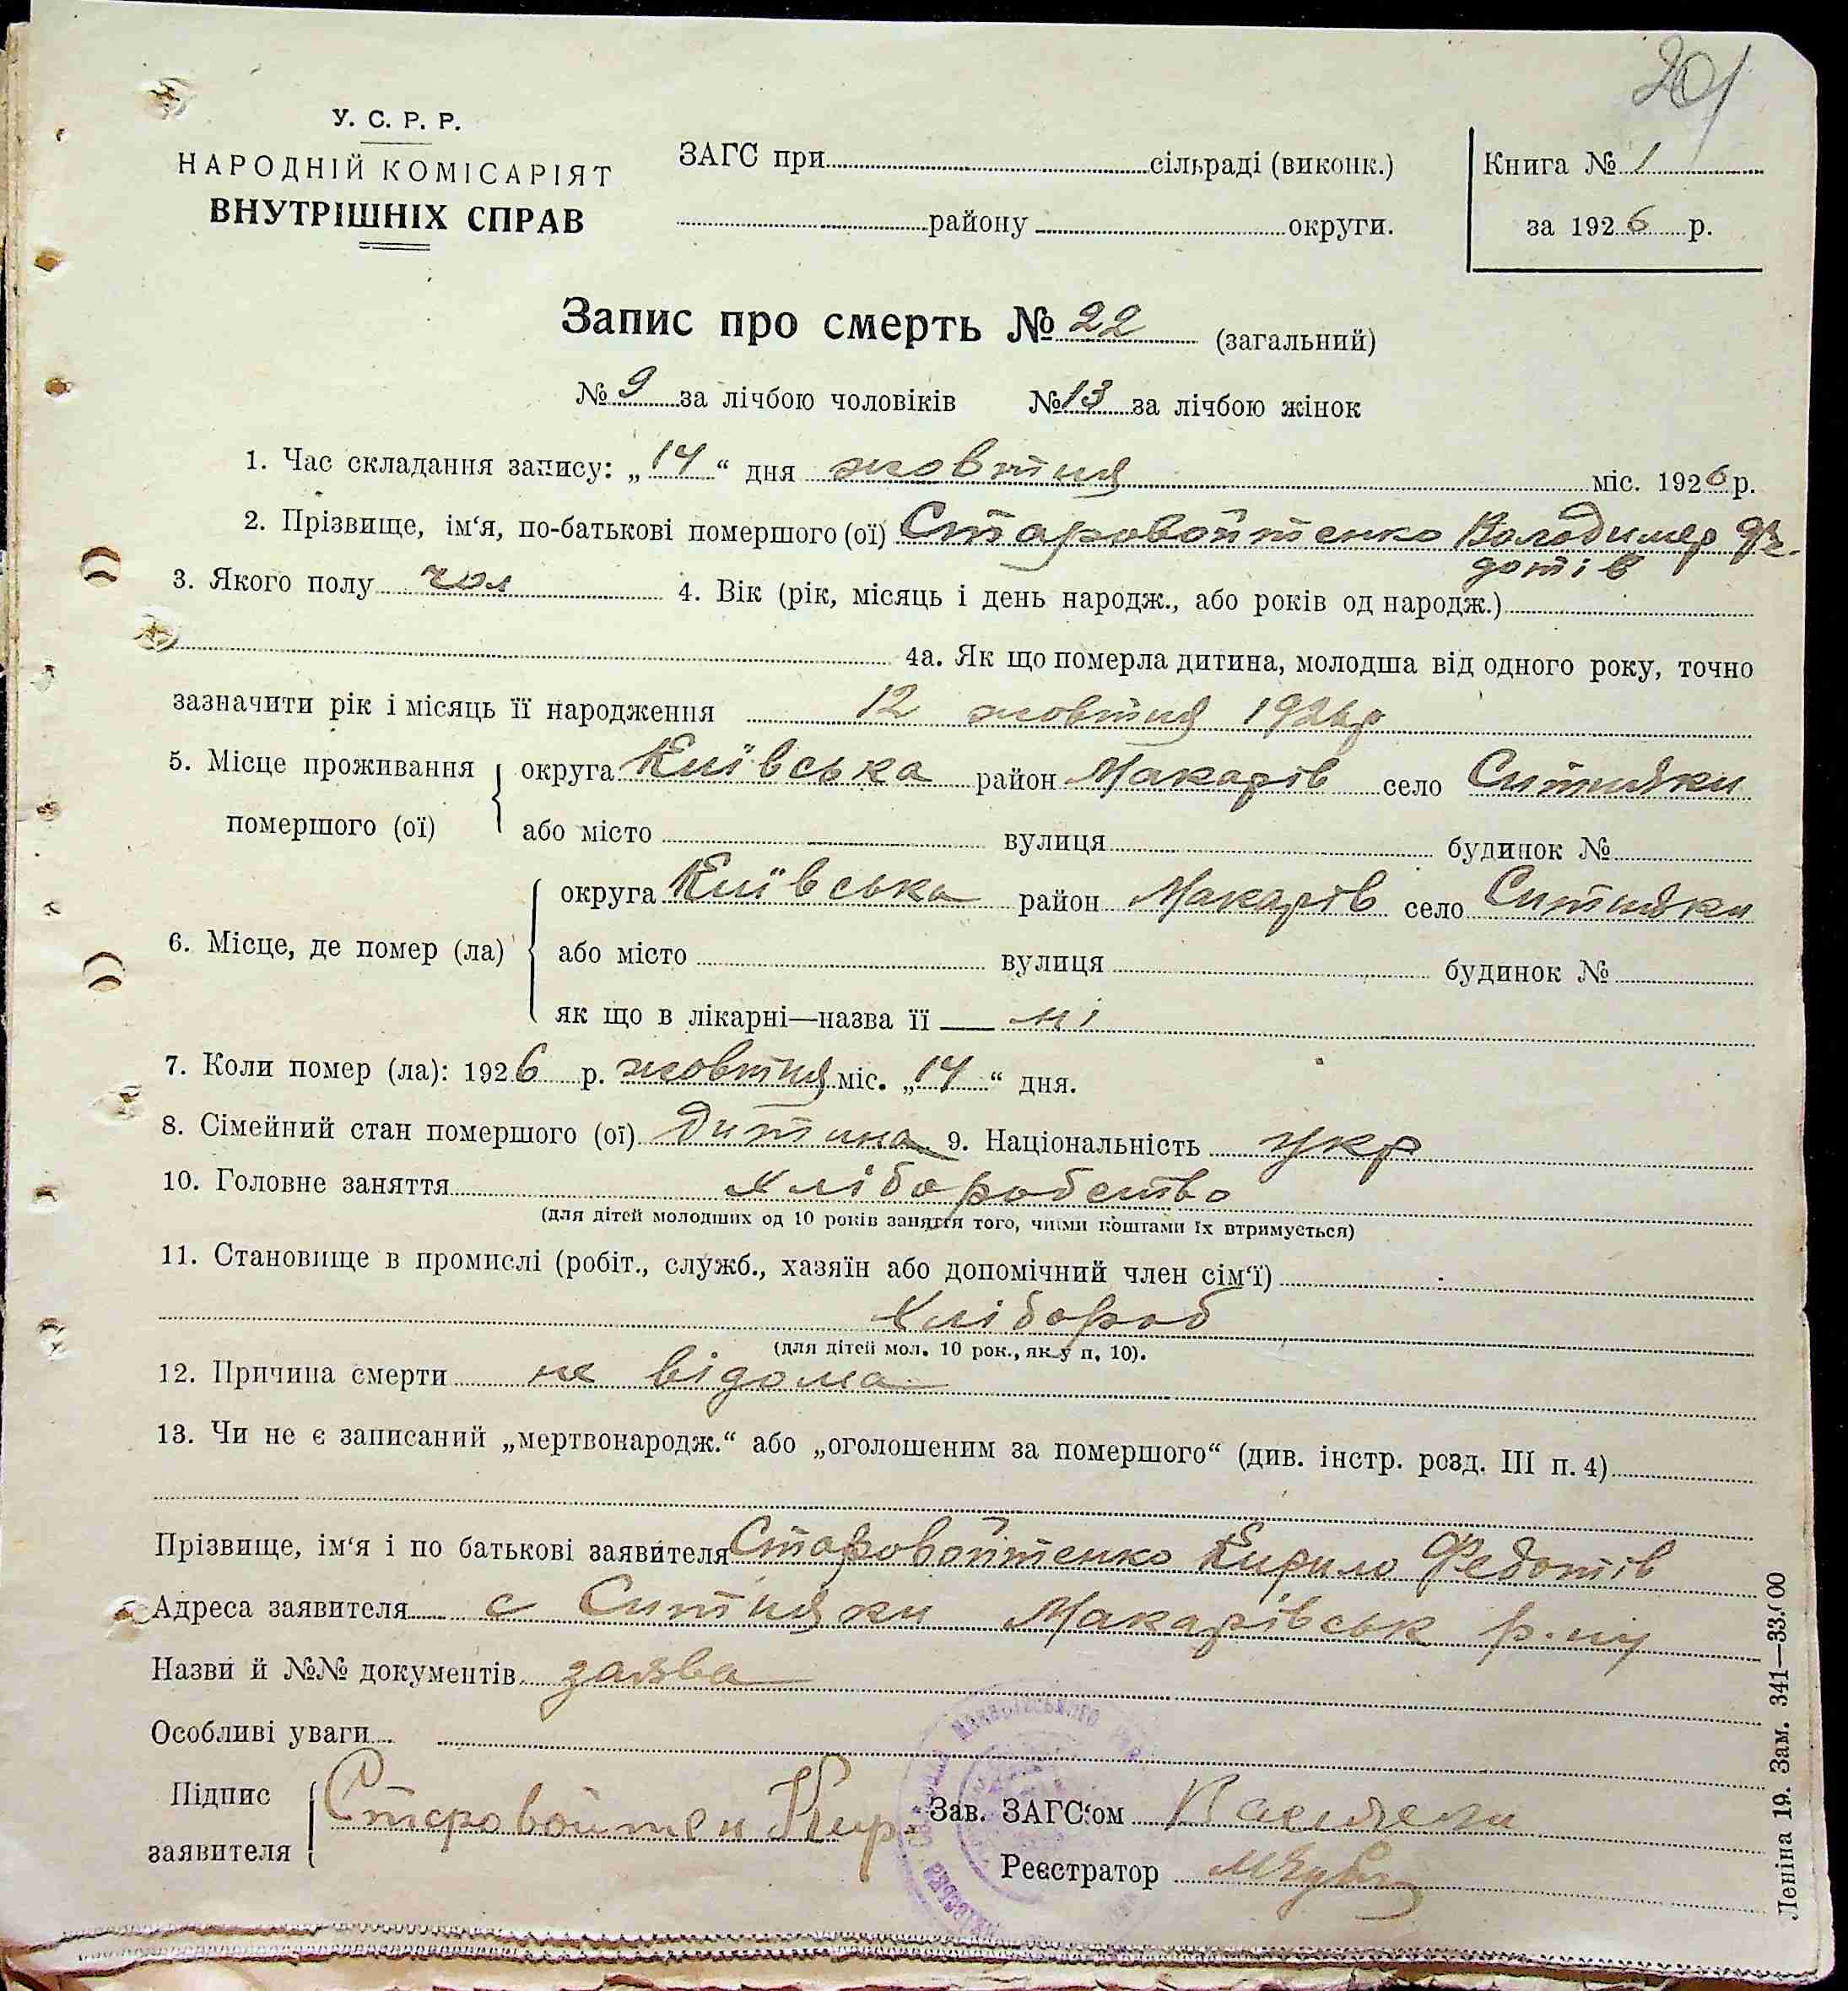 201
У. С. Р. Р.
НАРОДНІЙ КОМІСАРІЯТ
ВНУТРІШНІХ СПРАВ
ЗАГС при сільраді (виконк.)
району округи.
Книга № 1
за 1926 р.
Запис про смерть № 22 (загальний)
№ 9 за лічбою чоловіків № 13 за лічбою жінок
1. Час складання запису: „14“ дня жовтня міс. 1926 р.
2. Прізвище, ім‘я, по-батькові помершого (ої) Старовойтенко Володимер Фе-
дотів
3. Якого полу чол 4. Вік (рік, місяць і день народж., або років од народж.)
4а. Як що померла дитина, молодша від одного року, точно
зазначити рік і місяць її народження 12 жовтня 1926р
5. Місце проживання округа Київська район Макарів село Ситняки
помершого (ої) або місто вулиця будинок №
округа Київська район Макарів село Ситняки
6. Місце, де помер (ла) або місто вулиця будинок №
як що в лікарні—назва її ні
7. Коли помер (ла): 1926 р. жовтня міс. „14“ дня.
8. Сімейний стан помершого (ої) дитина 9. Національність укр
10. Головне заняття хліборобство
(для дітей молодших од 10 років заняття того, чиїми коштами їх втримується)
11. Становище в промислі (робіт., служб., хазяїн або допомічний член сім‘ї)
хлібороб
(для дітей мол. 10 рок., як у п. 10).
12. Причина смерти не відома
13. Чи не є записаний „мертвонародж.“ або „оголошеним за помершого“ (див. інстр. розд. III п. 4)
Прізвище, ім‘я і по батькові заявителя Старовойтенко Кирило Федотів
Адреса заявителя с Ситняки Макарівськ р-ну
Назви й №№ документів заява
Особливі уваги
Підпис Старовойтен Кир. Зав. ЗАГС‘ом
заявителя
Реєстратор
Леніна 19. Зам. 341—33.000